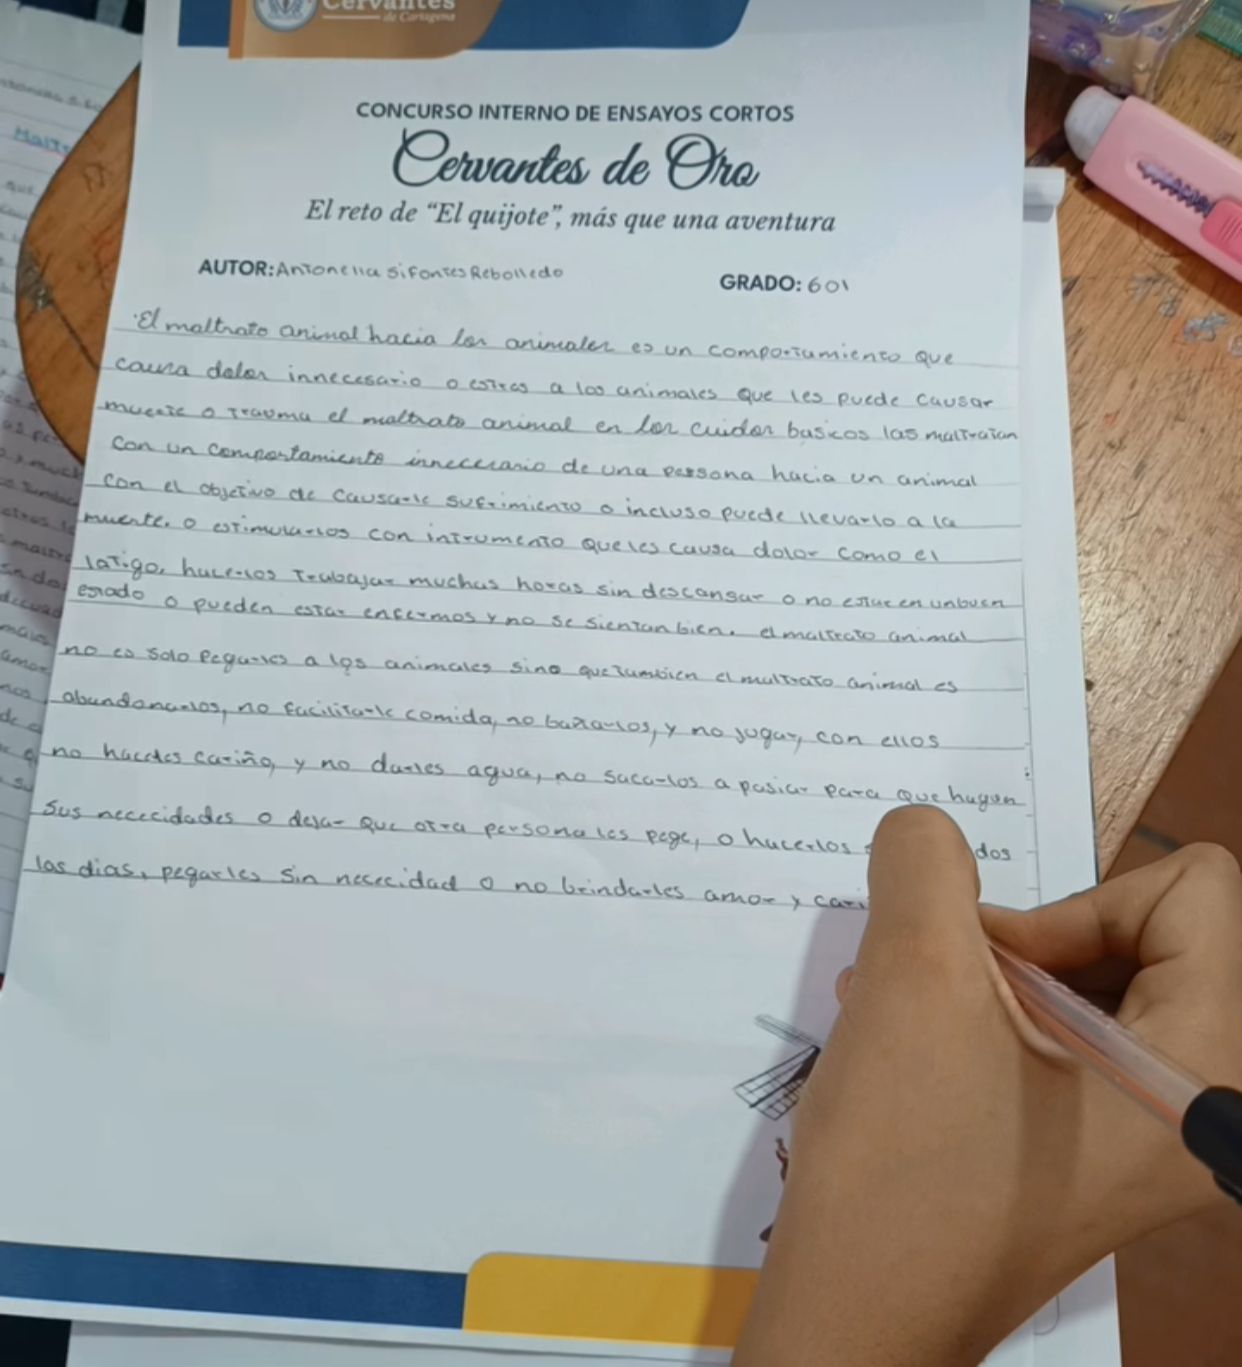 Cervantes
de Cartagena
CONCURSO INTERNO DE ENSAYOS CORTOS
Cervantes de Oro
El reto de “El quijote”, más que una aventura
AUTOR: Antonella Sifontes Rebolledo
GRADO: 601
El maltrato animal hacia los animales es un comportamiento que
causa dolor innecesario o estres a los animales que les puede causar
muerte o trauma el maltrato animal en los cuidos basicos las maltratan
con un comportamiento innecesario de una persona hacia un animal
con el objetivo de causarle sufrimiento o incluso puede llevarlo a la
muerte. o estimularlos con intrumento que les causa dolor como el
latigo, hacerlos trabajar muchas horas sin descansar o no estar en un buen
esrado o pueden estar enfermos y no se sientan bien. el maltrato animal
no es solo pegarles a los animales sino que tambien el maltrato animal es
abandonarlos, no facilitarle comida, no bañarlos, y no jugar, con ellos
no hacerles cariño, y no darles agua, no sacarlos a pasiar para que hagan
sus nececidades o dejar que otra persona les pege, o hacerlos dos
los dias, pegarles sin nececidad o no brindarles amor y cari